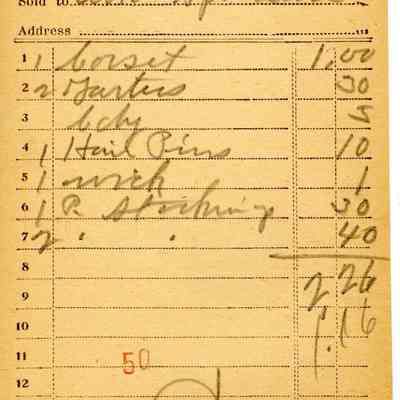 Sold to
Address
1 1 Corset 1.00
2 2 Garters 30
3 5
4 1 Hair Pins 10
5 1 wick 1
6 1 P. Stockings 30
7 2 " " 40
8 2 26
9
10 1.16
11 50
12